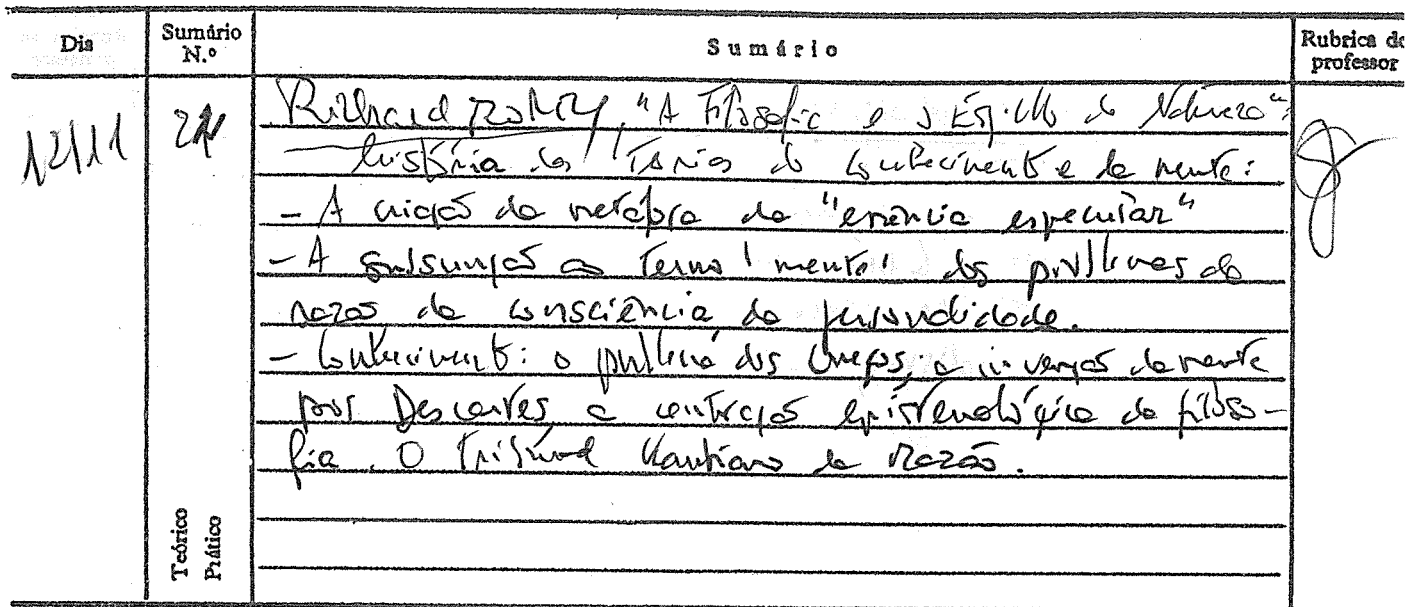 Dia
Sumário N.º
Sumário
Rubrica do professor
12/11
Richard Rorty, "A Filosofia e o Espelho da Natureza":
história das Teorias do conhecimento e da mente:
- A criação da metáfora da "essência especular"
- A subsunção ao termo 'mente' dos problemas da
razão da consciência da personalidade.
- Conhecimento: o problema dos a invenção da mente
por Descartes, a epistemológica da filoso-
fia. O Tribunal Kantiano da Razão.
Teórico
Prático